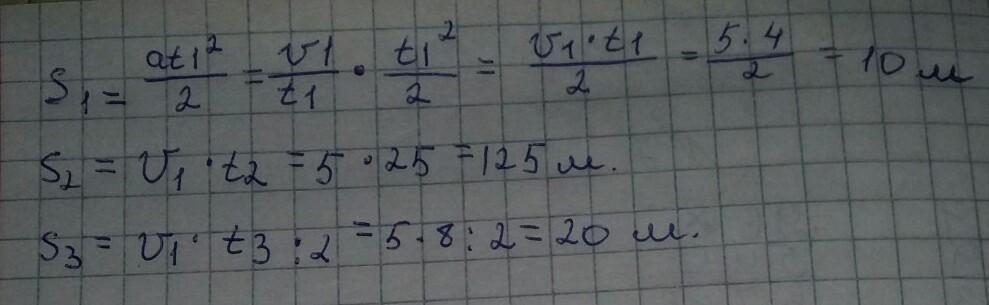 S₁ = at1²/2 = v1/t1 · t1²/2 = v₁·t1/2 = 5·4/2 = 10 м
S₂ = v₁ · t2 = 5 · 25 = 125 м.
S₃ = v₁ · t3 : 2 = 5 · 8 : 2 = 20 м.